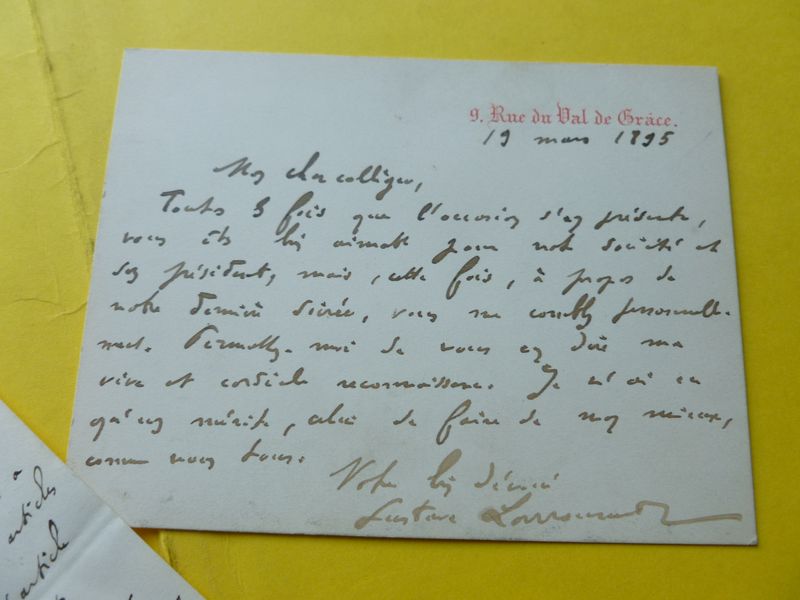 9. Rue du Val de Grâce.
19 mars 1895
Mon cher collègue,
Toutes les fois que l'occasion s'en présente,
vous êtes bien aimable pour notre société et
son président, mais, cette fois, à propos de
notre dernière soirée, vous me comblez personnelle-
ment. Permettez-moi de vous en dire ma
vive et cordiale reconnaissance. Je n'ai eu
qu'un mérite, celui de faire de mon mieux,
comme nous tous.
Votre bien dévoué
Gustave Larroumet
a
articles
article